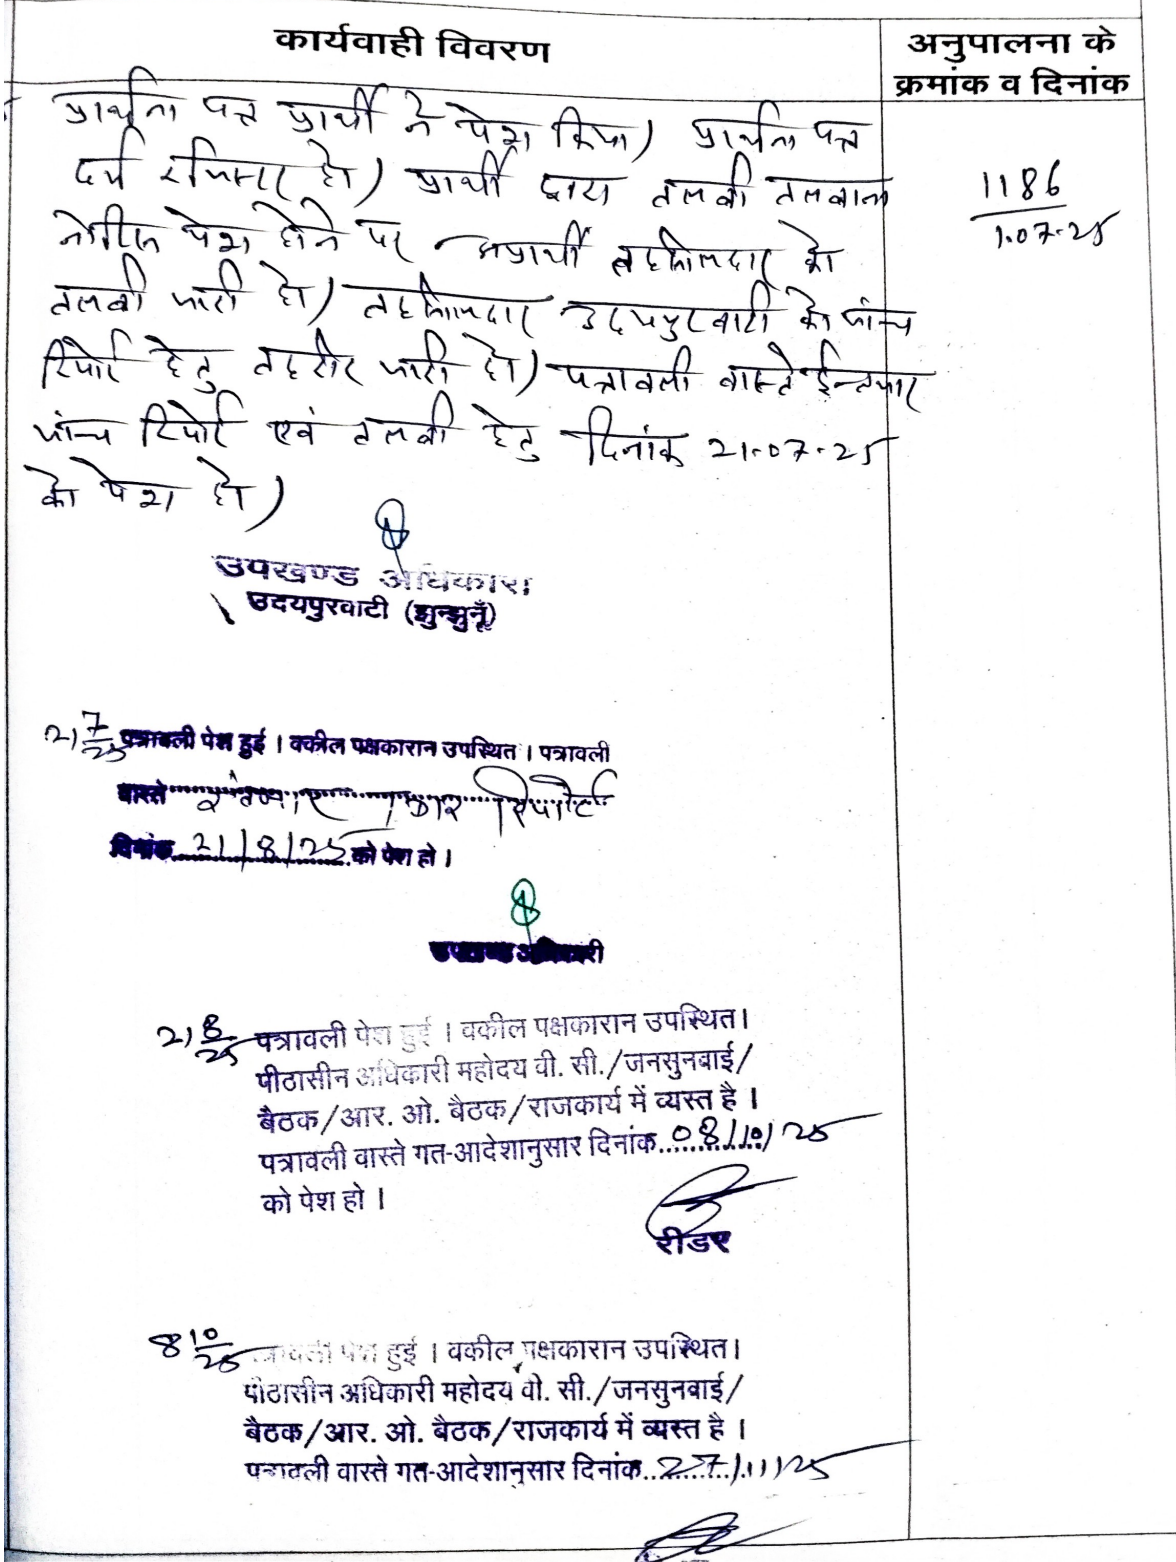 कार्यवाही विवरण
अनुपालना के
क्रमांक व दिनांक
प्रार्थना पत्र प्रार्थी ने पेश किया) प्रार्थना पत्र
दर्ज रजिस्टर हो) प्रार्थी द्वारा तलबी तलबाना
नोटिस पेश होने पर अप्रार्थी तहसिलदार को
तलबी जारी हो) तहसिलदार उदयपुरवाटी को जांच
रिपोर्ट हेतु तहरीर जारी हो) पत्रावली वास्ते ईन्तजार
जांच रिपोर्ट एवं तलबी हेतु दिनांक 21.07.25
को पेश हो)
1186
1.07.25
उपखण्ड अधिकारी
उदयपुरवाटी (झुन्झुनूँ)
21 7/25 पत्रावली पेश हुई । वकील पक्षकारान उपस्थित । पत्रावली
वास्ते इंतजार रिपोर्ट
दिनांक 21/8/25 को पेश हो ।
उपखण्ड अधिकारी
21 8/25 पत्रावली पेश हुई । वकील पक्षकारान उपस्थित।
पीठासीन अधिकारी महोदय वी. सी./जनसुनवाई/
बैठक/आर. ओ. बैठक/राजकार्य में व्यस्त है ।
पत्रावली वास्ते गत-आदेशानुसार दिनांक 08/10/25
को पेश हो ।
रीडर
8 10/25 पत्रावली पेश हुई । वकील पक्षकारान उपस्थित।
पीठासीन अधिकारी महोदय वी. सी./जनसुनवाई/
बैठक/आर. ओ. बैठक/राजकार्य में व्यस्त है ।
पत्रावली वास्ते गत-आदेशानुसार दिनांक 27/11/25